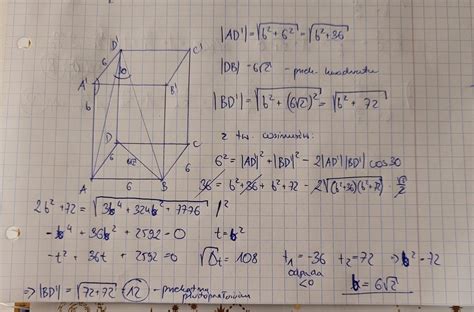 D'
C'
6
A'
B'
6
D
C
6
6√2
6
A
6
B
|AD'| = √(b² + 6²) = √(b² + 36)
|DB| = 6√2 - przek. kwadratu
|BD'| = √(b² + (6√2)²) = √(b² + 72)
z tw. cosinusów:
6² = |AD|² + |BD'|² - 2|AD'||BD'| cos30
36 = b² + 36 + b² + 72 - 2√((b²+36)(b²+72)) · √3/2
2b² + 72 = √(3b⁴ + 324b² + 7776) |²
-b⁴ + 36b² + 2592 = 0 t = b²
-t² + 36t + 2592 = 0 √Δt = 108 t₁ = -36 t₂ = 72 ⇒ b² = 72
odpada <0 b = 6√2
⇒ |BD'| = √(72 + 72) = 12 - przekątna prostopadłościanu